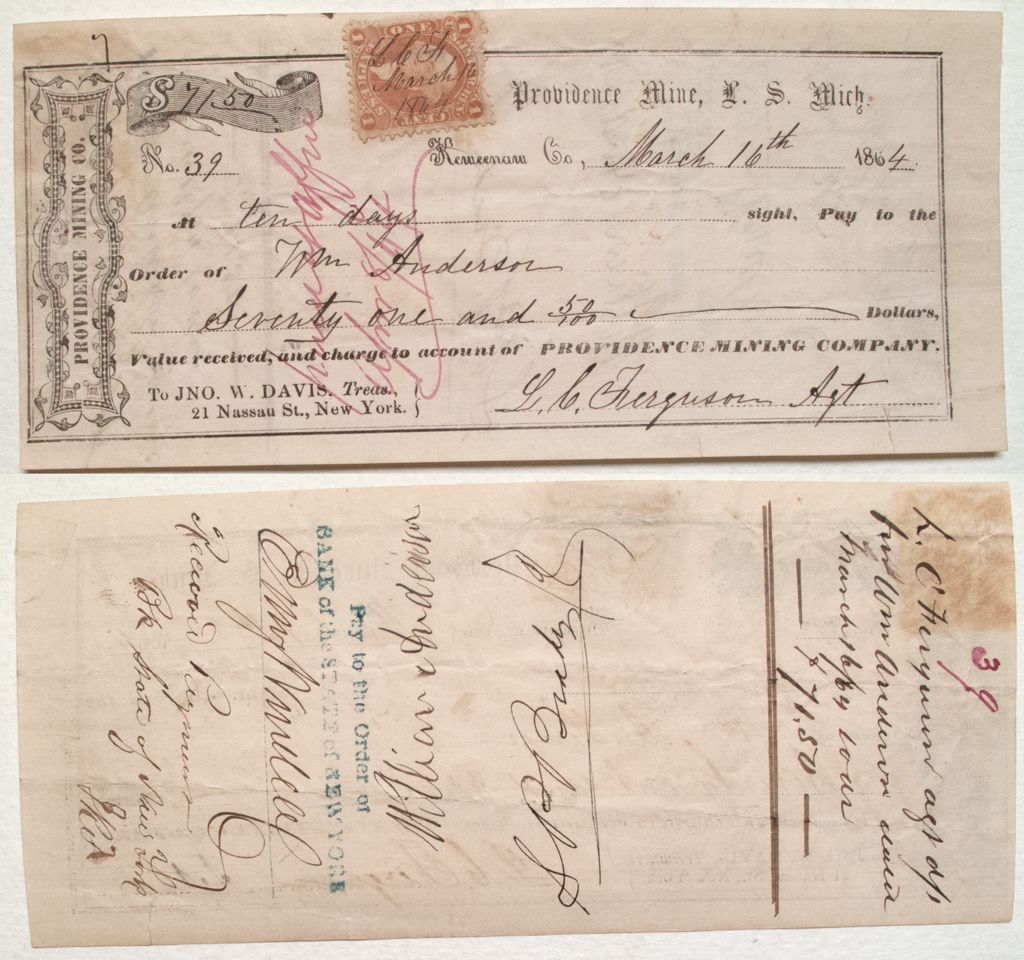 PROVIDENCE MINING CO.
$ 71.50
L C F
March
1864
ONE
CENT
Providence Mine, L. S. Mich.
No. 39
Keweenaw Co, March 16th 1864
At ten days sight, Pay to the
Order of Wm Anderson
Seventy one and 50/100 Dollars,
Value received, and charge to account of PROVIDENCE MINING COMPANY.
To JNO. W. DAVIS. Treas.,
21 Nassau St., New York.
L. C. Ferguson Agt
39
L. C Ferguson agt
Wm Anderson
March 16/64
$ 71.50
William Anderson
Pay to the Order of
BANK of the STATE of NEW YORK
Received Payment
Bk State of New York